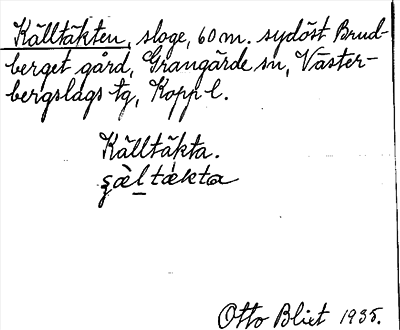 Källtäkten, sloge, 60 m. sydöst Brud-
berget gård, Grangärde sn, Väster-
bergslags tg, Kopp l.
Källtäkta.
şæ̀l̠tækta
Otto Blixt 1935.